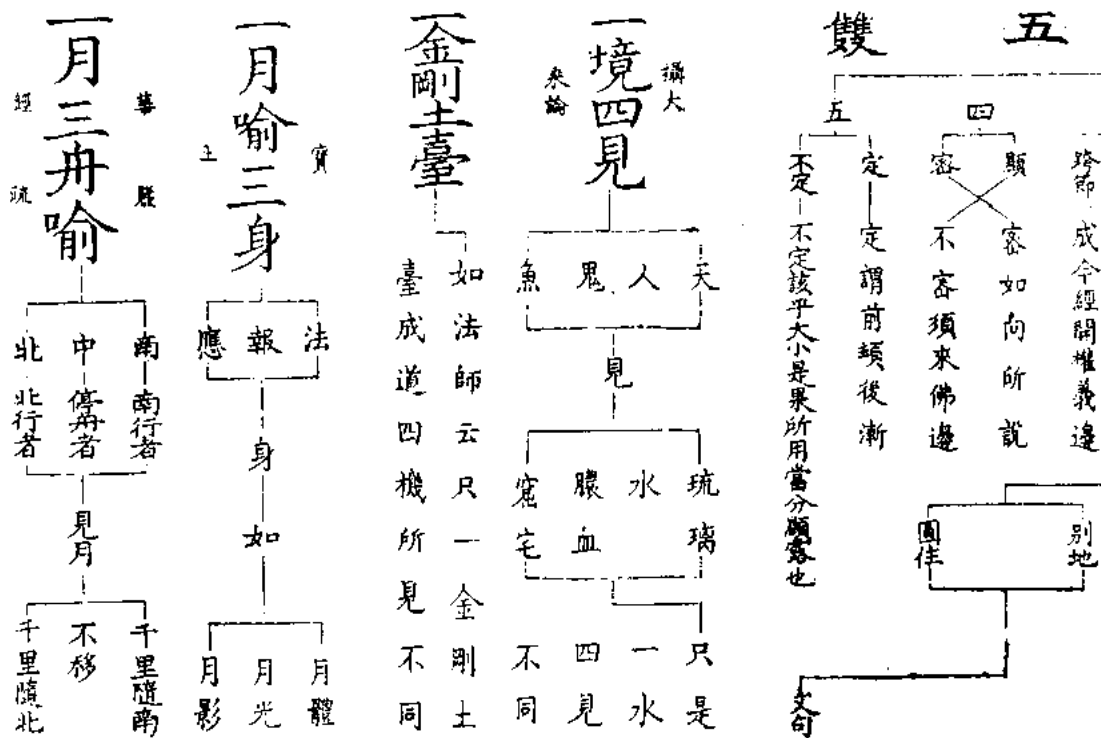 五
雙
四
五
跨節
成今經開權義邊
顯
密如向所說
密
不密須來佛邊
定
定謂前頓後漸
不定
不定該乎大小是果所用當分顯露也
別地
圓住
文句
一境四見
攝大
乘論
天
人
鬼
魚
見
琉璃
水
膿血
窟宅
只是
一水
四見
不同
一金剛土臺
如法師云只一金剛土
臺成道四機所見不同
一月喻三身
寶
王
法
報
應
身
如
月體
月光
月影
一月三舟喻
華
嚴
經
疏
南
南行者
中
停舟者
北
北行者
見月
千里隨南
不移
千里隨北